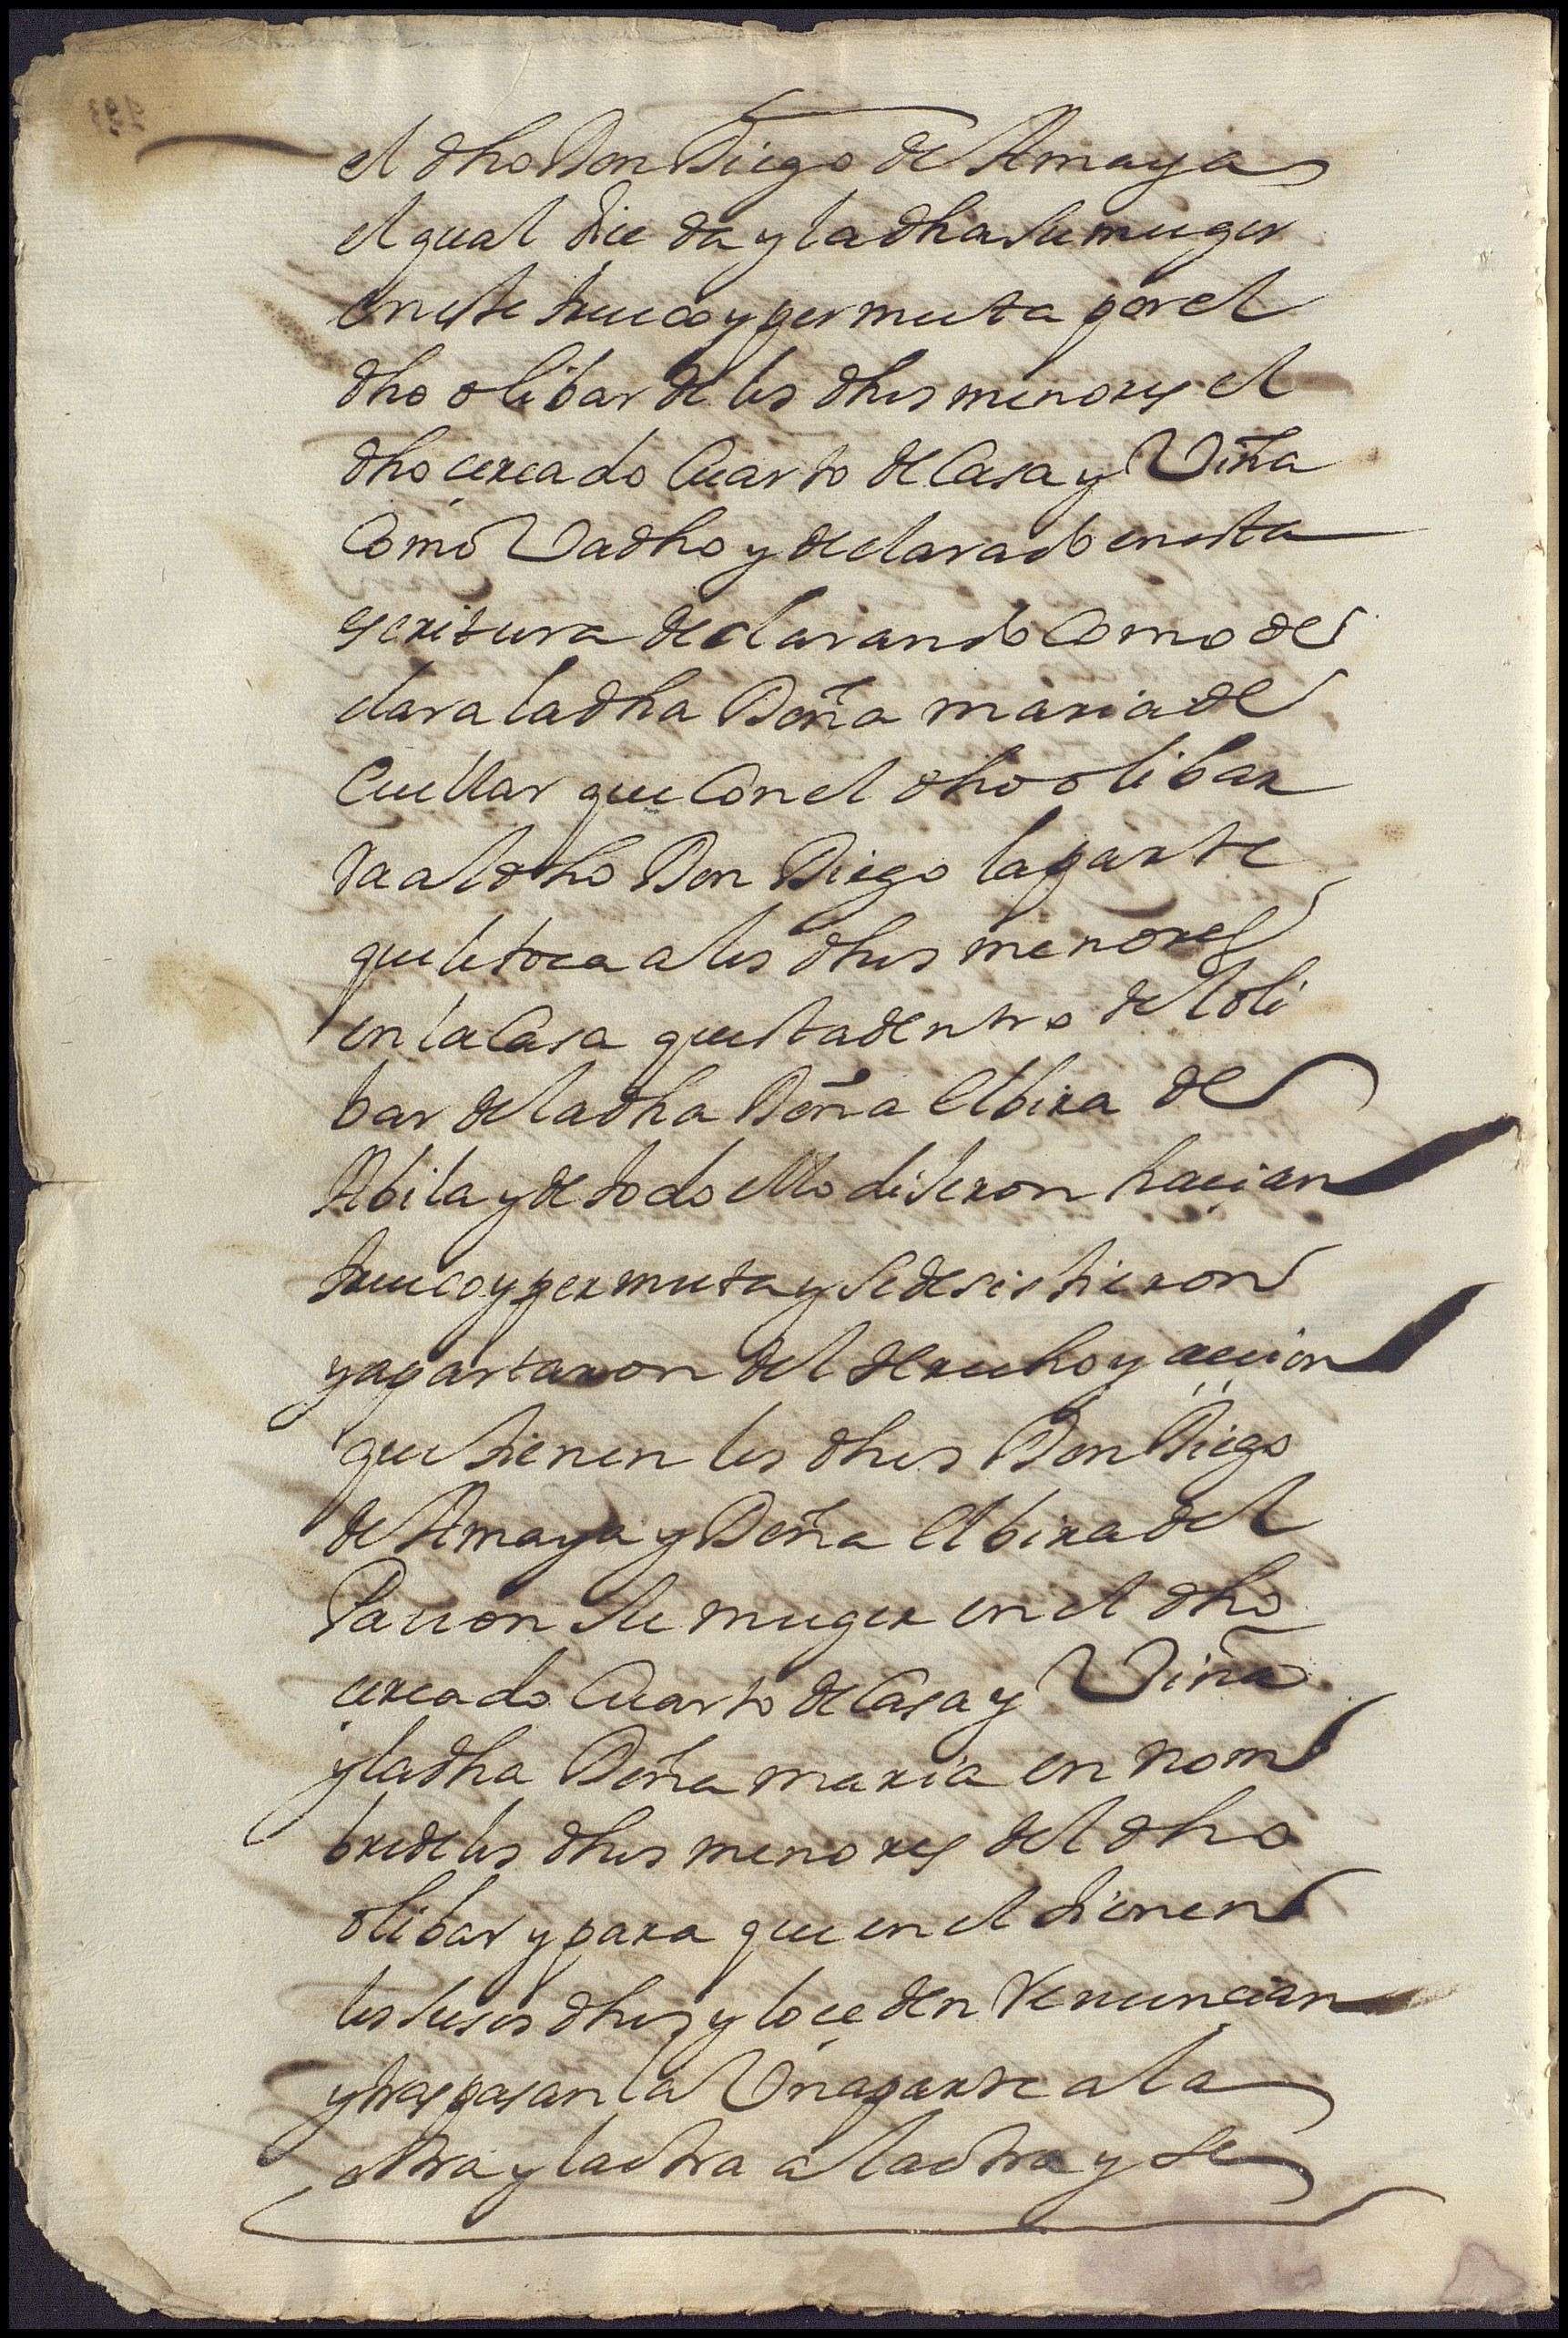 el dho Don Diego de Amaya
el qual dice da y la dha su muger
en este trueco y permuta por el
dho olibar de los dhos menores el
dho cercado Cuarto de Casa y Viña
Como Va dho y declarado en esta
escritura declarando Como de
clara la dha Doña maria de
Cuellar que Con el dho olibar
da al dho Don Diego la parte
que le toca a los dhos menores
en la Casa questa dentro del oli
bar de la dha Doña Elbira de
Abila y de todo ello dijeron haçian
trueco y permuta y se desistieron
y apartaron del derecho y acçion
que tienen los dhos Don Diego
de Amaya y Doña Elbira del
Pacion su muger en el dho
cercado Cuarto de Casa y Viña
y la dha Doña maria en nom
bre de los dhos menores del dho
olibar y para que en el tienen
los susos dhos y lo çeden Renuncian
y traspasan la Una parte a la
otra y la otra a la otra y se